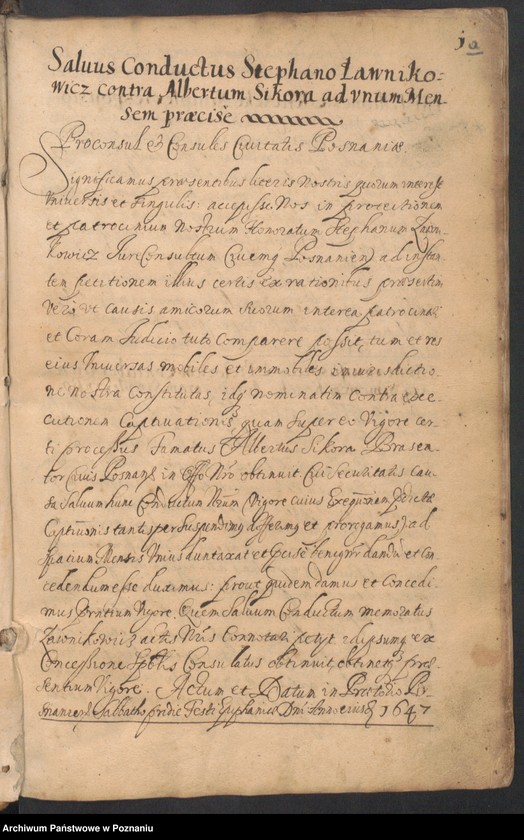 1a
Salvus Conductus Stephano Ławniko-
wicz contra Albertum Sikora ad vnum Men-
sem præcise
Proconsul et Consules Civitatis Posnaniæ.
Significamus præsentibus literis Nostris quorum interest
Vniversis et singulis: accepisse Nos in protectionem
et patrocinium nostrum Honoratum Stephanum Ławni-
kowicz JureConsultum Civemq Posnanien ad instan-
tem petitionem illius certis ex rationibus præsertim
vero vt causis amicorum suorum interea patrocinari
et Coram Judicio tuto Comparere possit, tum et res
eius Vniversas mobiles et immobiles in iurisdictio-
ne nostra Constitutas, idq nominatim Contra exe-
cutionem Captivationis, quam super eo Vigore cer-
ti processus Famatus Albertus Sikora Brasea-
tor Civis Posnan in Offo Nro obtinuit
Salvum hunc Conductum Nrum Vigore cuius
Captivnis suspendimus differimus et prorogamus ad
spatium Mensis Vnius duntaxat et benigne dandu et Con-
cedendum esse duximus: prout quidem damus et Concedi-
mus Vigore. Quem Salvum Conductum memoratus
Ławnikowicz actis Nris Connotari petyt idipsumq ex
Concessione Spblis Consulatus obtinuit, obtinetq præ-
sentium Vigore. Actum et Datum in Prætorio Po-
snanien Sabbatho pridie Festi Epiphaniæ Dni Anno eiusd 1647
Archiwum Państwowe w Poznaniu